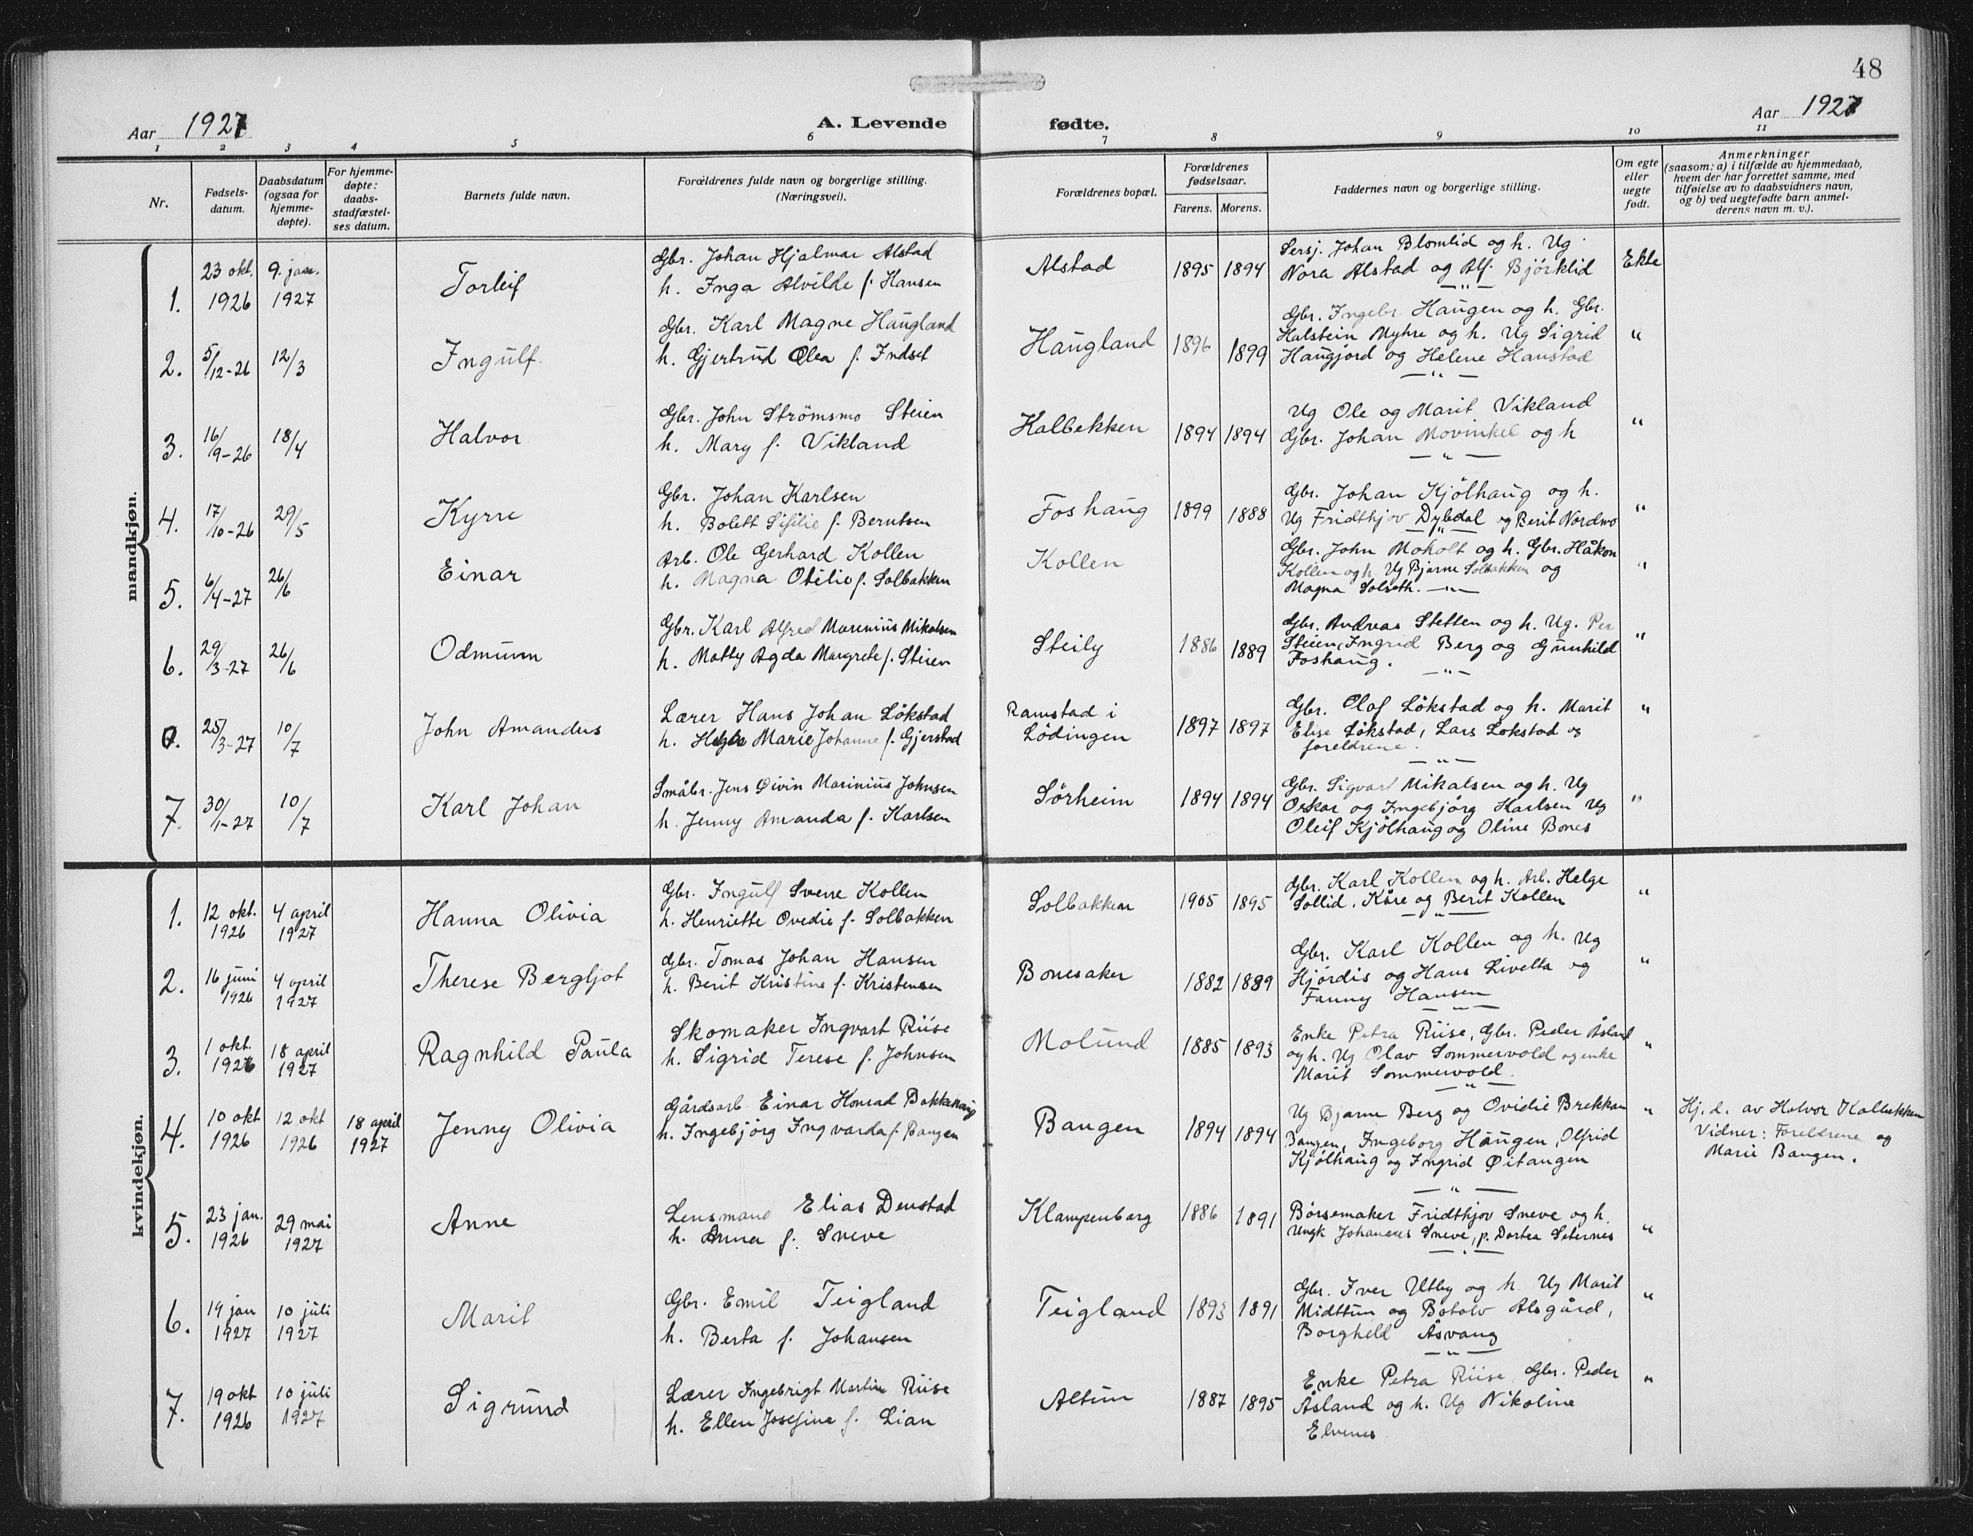 48
Aar 1927
A. Levende fødte.
Aar 1927
1 2 3 4 5 6 7 8 9 10 11
Nr.
Fødsels-
datum.
Daabsdatum
(ogsaa for
hjemme-
døpte).
For hjemme-
døpte:
daabs-
stadfæstel-
ses datum.
Barnets fulde navn.
Forældrenes fulde navn og borgerlige stilling.
(Næringsvei).
Forældrenes bopæl.
Forældrenes
fødselsaar.
Farens. Morens.
Faddernes navn og borgerlige stilling.
Om egte
eller
uegte
født.
Anmerkninger
(saasom: a) i tilfælde av hjemmedaab,
hvem der har forrettet samme, med
tilføielse av to daabsvidners navn,
og b) ved uegtefødte barn anmel-
derens navn m. v.).
mandkjøn.
1. 23 okt. 1926 9. jan. 1927 Torleif
Gbr. Johan Hjalmar Alstad
h. Inga Alvilde f. Hansen
Alstad 1895 1894
Sersj. Johan Blomlid og h. Ug
Nora Alstad og Alf. Bjørklid
Ekte
2. 5/12-26 12/3 Ingulf
Gbr. Karl Magne Haugland
h. Gjertrud Olea f. Indset
Haugland 1896 1899
Gbr. Ingebr. Haugen og h. Gbr.
Halstein Myhre og h. Ug Sigrid
Haugjord og Helene Hanstad
"
3. 16/9-26 18/4 Halvor
Gbr. John Strømsmo Steien
h. Mary f. Vikland
Kalbekken 1894 1894
Ug Ole og Marit Vikland
Gbr. Johan Movinkel og h
"
4. 17/10-26 29/5 Kyrre
Gbr. Johan Karlsen
h. Bolett Sifilie f. Berntsen
Foshaug 1899 1888
Gbr. Johan Kjølhaug og h.
Ug Fridthjov Dybdal og Berit Nordmo
"
5. 6/4-27 26/6 Einar
Arb. Ole Gerhard Kollen
h. Magna Otilie f. Solbakken
Kollen
Gbr. John Moholt og h. Gbr. Håkon
Kollen og h. Ug Bjarne Solbakken og
Magna Solseth.
"
6. 29/3-27 26/6 Odmunn
Gbr. Karl Alfred Marenius Mikalsen
h. Motty Agda Margrete f. Steien
Steily 1886 1889
Gbr. Andreas Stetten og h. Ug. Per
Steien, Ingrid Berg og Gunhild
Foshaug.
"
25/3-27 10/7 John Amandus
Lærer Hans Johan Løkstad
h. Marie Johanne f. Gjerstad
Ramstad i
Lødingen 1897 1897
Gbr. Olaf Løkstad og h. Marit
Elise Løkstad, Lars Løkstad og
foreldrene.
"
7. 30/1-27 10/7 Karl Johan
Småbr. Jens Øivin Marinius Johnsen
h. Jenny Amanda f. Karlsen
Sørheim 1894 1894
Gbr. Sigvart Mikalsen og h. Ug
Oskar og Ingebjørg Karlsen Ug
Oleif Kjølhaug og Oline Bones
"
kvindekjøn.
1. 12 okt. 1926 4 april 1927 Hanna Olivia
Gbr. Ingulf Sverre Kollen
h. Henriette Ovedie f. Solbakken
Solbakken 1905 1895
Gbr. Karl Kollen og h. Arb. Helge
Sollid, Kåre og Berit Kollen
"
2. 16 juni 1926 4 april 1927 Therese Bergljot
Gbr. Tomas Johan Hansen
h. Berit Kristine f. Kristensen
Bonesaker 1882 1889
Gbr. Karl Kollen og h. Ug
Hjørdis og Hans Livelta og
Fanny Hansen
"
3. 1 okt. 1926 18 april 1927 Ragnhild Paula
Skomaker Ingvart Riise
h. Sigrid Terese f. Johnsen
Molund 1885 1893
Enke Petra Riise, Gbr. Peder Åsland
og h. Ug Olav Sommervold og enke
Marit Sommervold.
"
4. 10 okt 1926 12 okt 1926 18 april 1927 Jenny Olivia
Gårdsarb Einar Konrad Bakkehaug
h. Ingebjørg Ingvarda f. Bangen
Bangen 1894 1894
Ug Bjarne Berg og Ovidie Brekkan
Bangen, Ingeborg Haugen, Olfrid
Kjølhaug og Ingrid Øitangen
"
Hj. d. av Halvor Kolbekken
Vidner: Foreldrene og
Marie Bangen.
5. 23 jan. 1926 29 mai 1927 Anne
Lensmand Elias Denstad
h. Anna f. Sneve
Klampenborg 1886 1891
Børsemaker Fridthjov Sneve og h.
Ungk Johannes Sneve, p. Dortea Seternes
"
6. 19 jan 1927 10 juli 1927 Marit
Gbr. Emil Teigland
h. Berta f. Johansen
Teigland 1893 1891
Gbr. Iver Utby og h. Ug Marit
Midttun og Botolv Alsgård,
Borghild Åsvang
"
7. 19 okt 1926 10 juli 1927 Sigrund
Lærer Ingebrigt Martin Riise
h. Ellen Josefine f. Lian
Altun 1887 1895
Enke Petra Riise Gbr. Peder
Åsland og h. Ug Nikoline
Elvenes
"